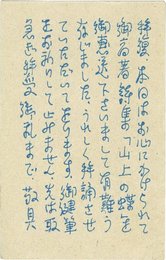 拝復 本日はお心にかけられて
御高著詩集「山上の蝶を
御恵送下さいまして有難う
存じました、うれしく拝誦させ
ていただいて居ります 御健筆
をお祈りして止みません、先は取
急ぎ拝受御礼まで、敬具